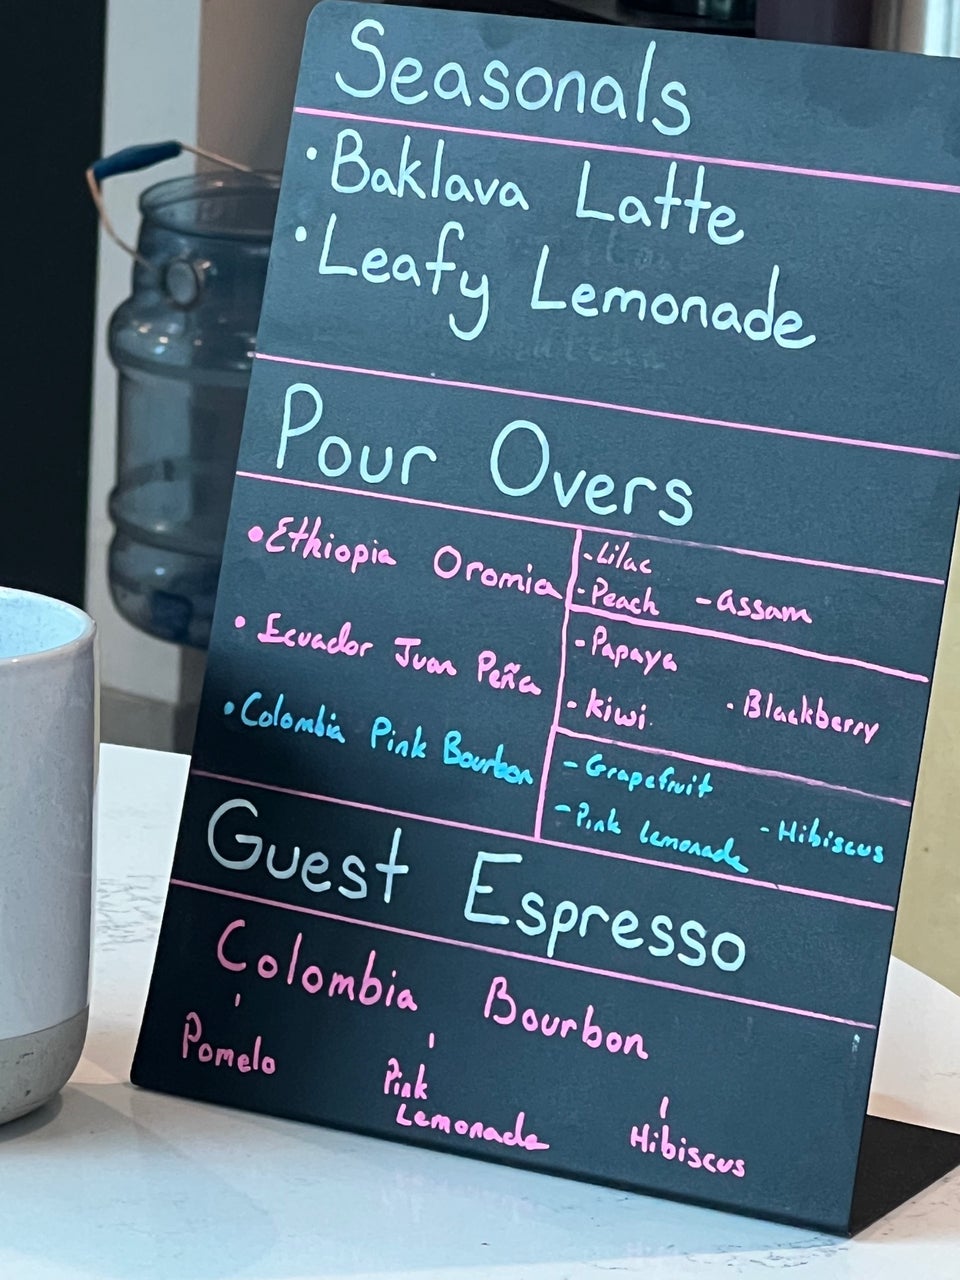 Seasonals
· Baklava Latte
· Leafy Lemonade
Pour Overs
• Ethiopia Oromia
- Lilac
- Peach - Assam
• Ecuador Juan Peña
- Papaya
- Kiwi - Blackberry
• Colombia Pink Bourbon
- Grapefruit
- Pink Lemonade - Hibiscus
Guest Espresso
Colombia Bourbon
Pomelo
Pink
Lemonade
Hibiscus